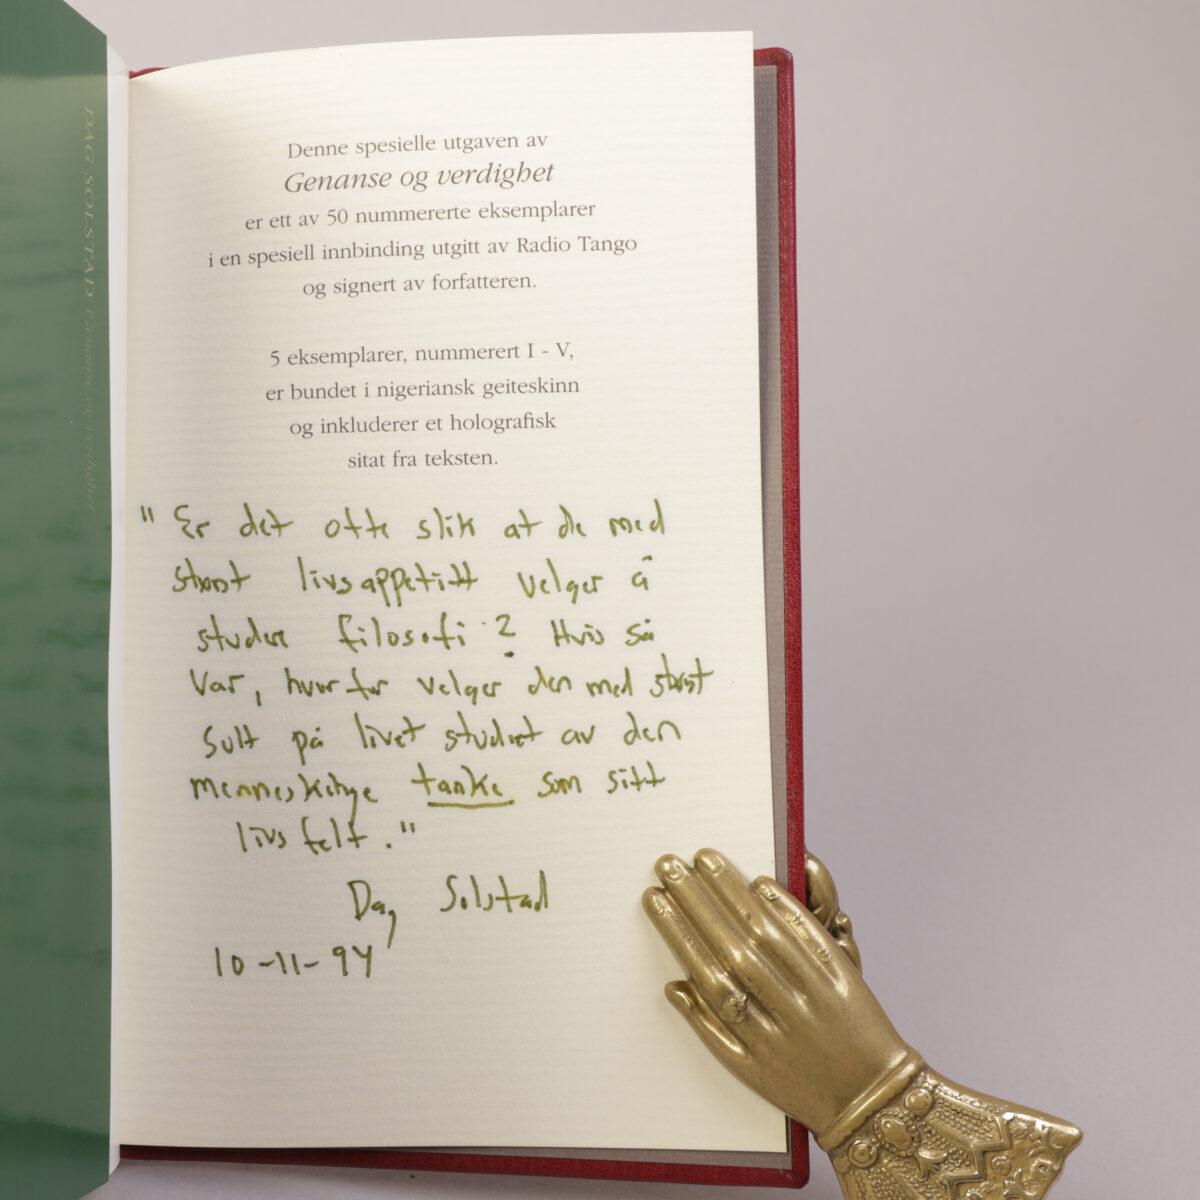 DAG SOLSTAD Genanse og verdighet
Denne spesielle utgaven av
Genanse og verdighet
er ett av 50 nummererte eksemplarer
i en spesiell innbinding utgitt av Radio Tango
og signert av forfatteren.
5 eksemplarer, nummerert I - V,
er bundet i nigeriansk geiteskinn
og inkluderer et holografisk
sitat fra teksten.
" Er det ofte slik at de med
størst livsappetitt velger å
studere filosofi ? Hvis så
var, hvorfor velger den med størst
sult på livet studiet av den
menneskelige tanke som sitt
livsfelt . "
Dag Solstad
10-11-94